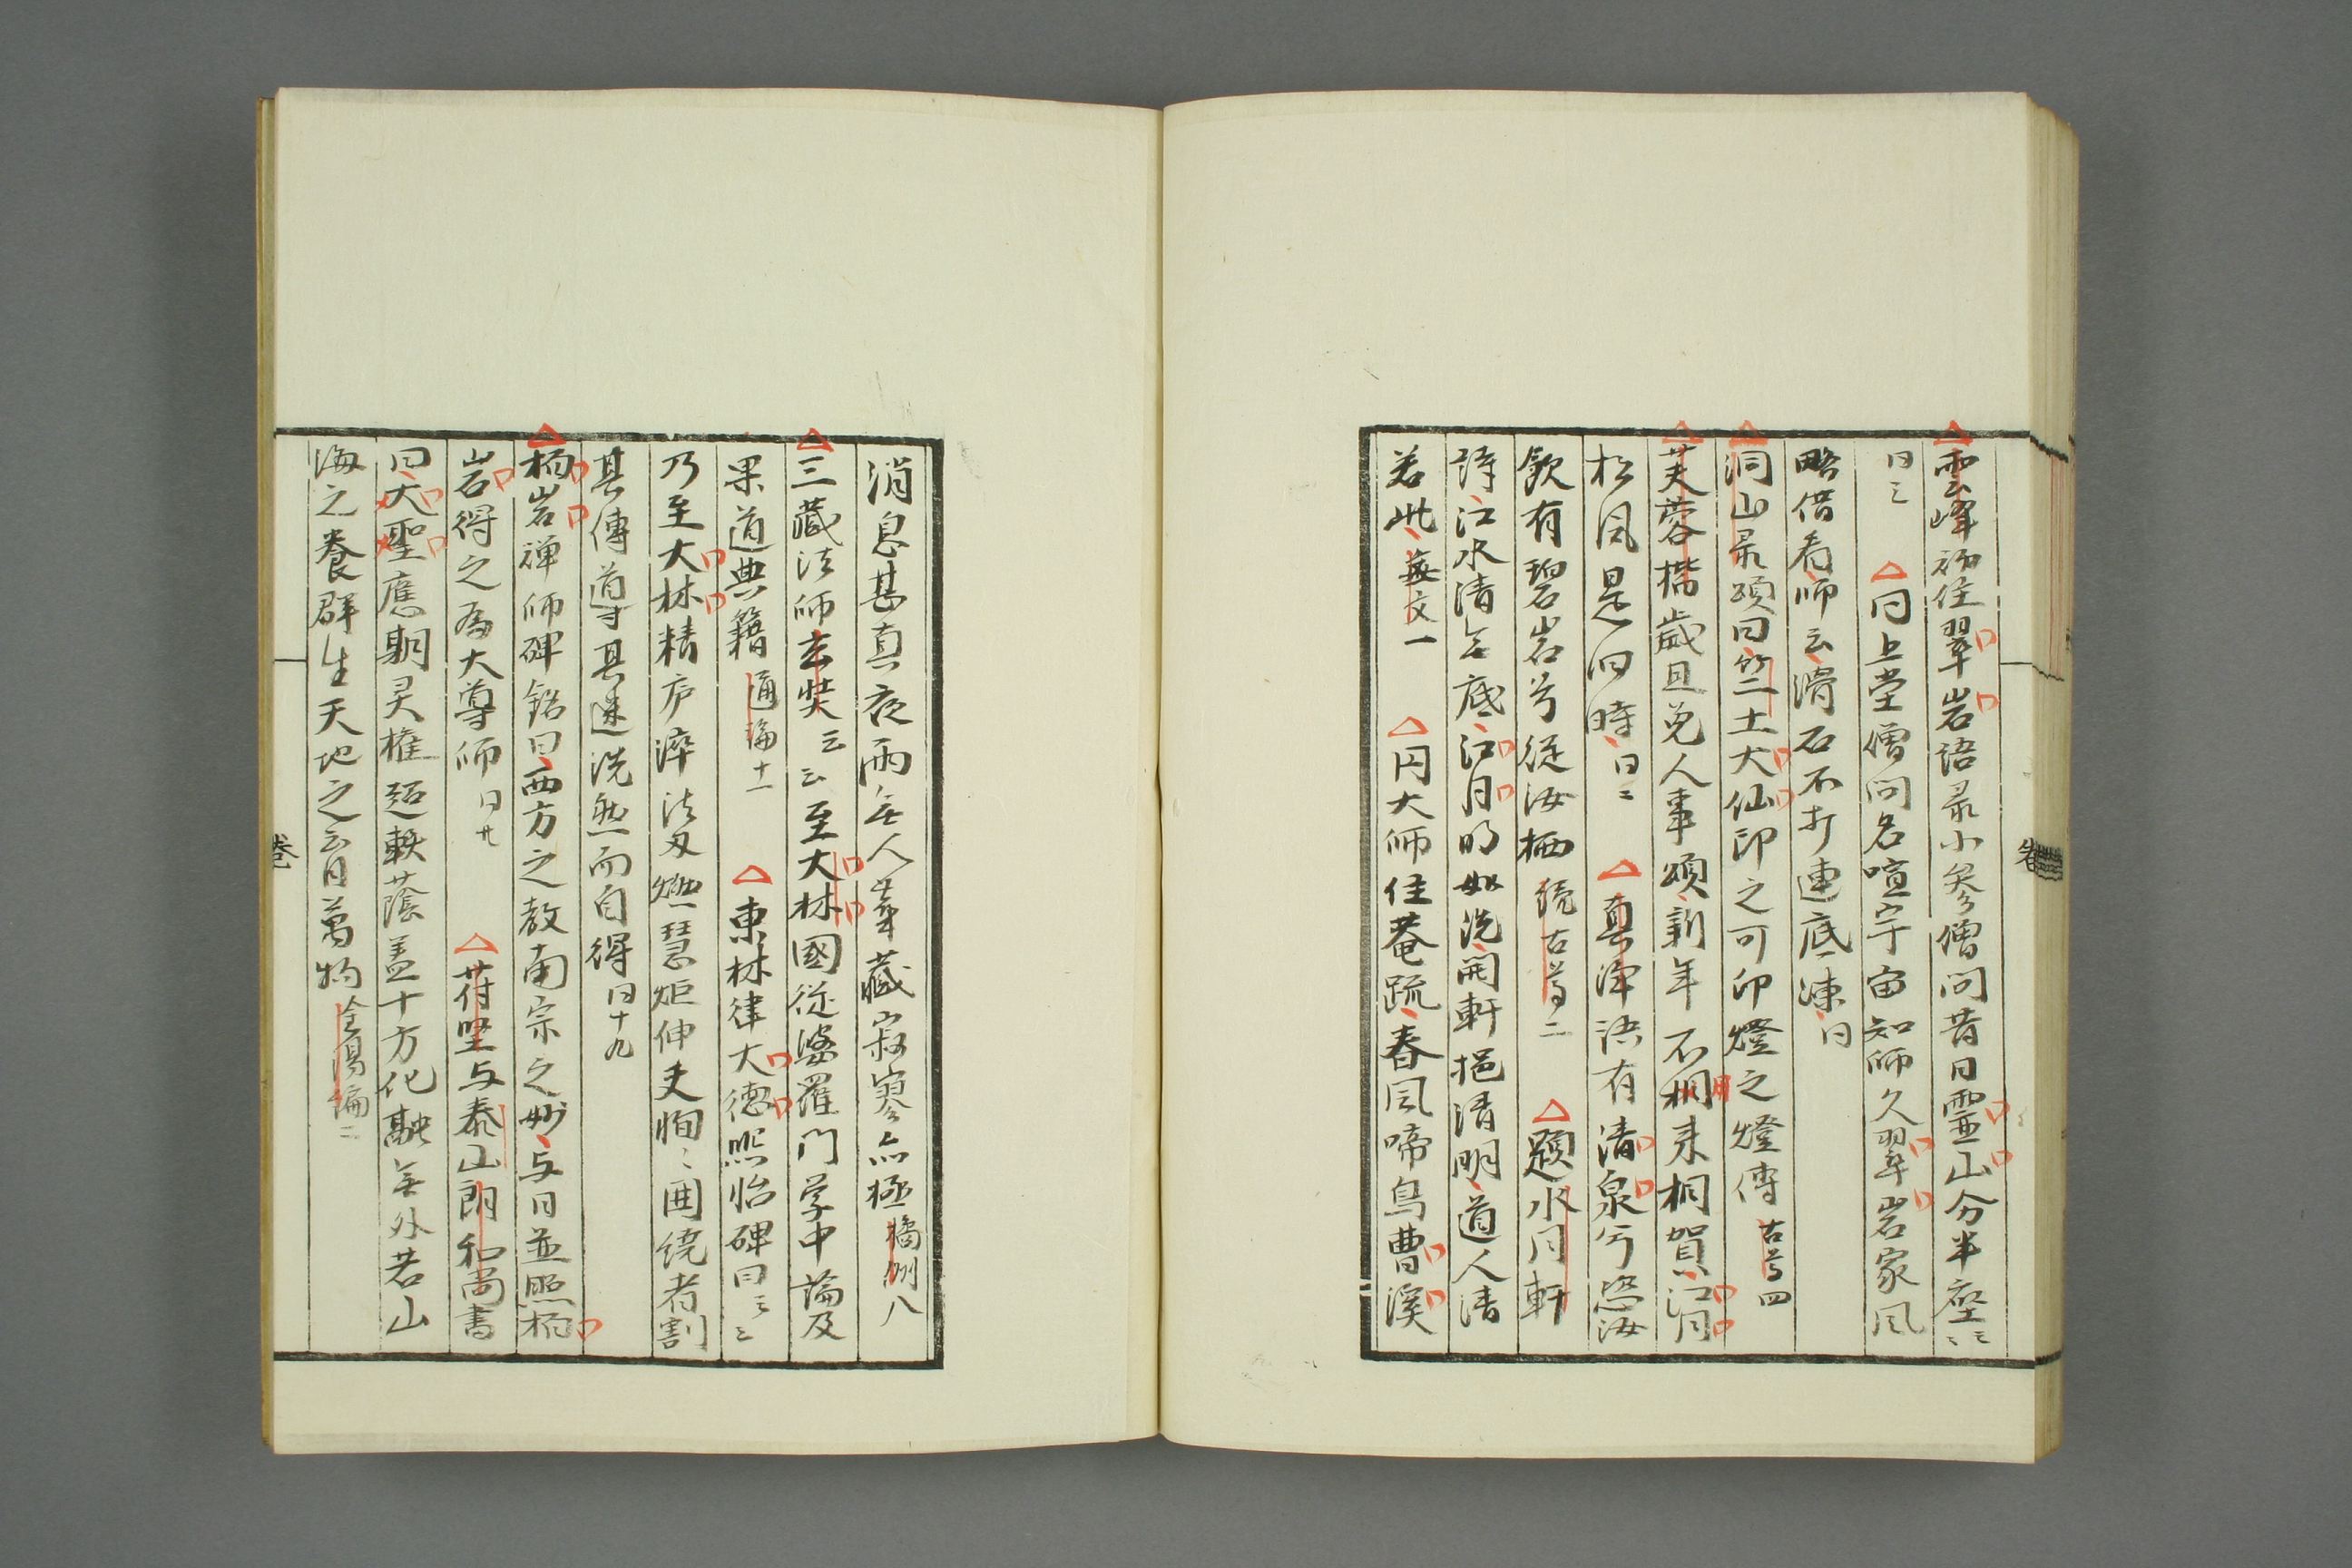 雲峰初住翠岩語录小参僧問昔日霊山分半座云云
同上堂僧問名喧宇宙知師久翠岩家風
略借看師云滑石不打連底凍同
洞山录頌曰竺土大仙印之可印燈之燈傳古尊四
芙蓉楷歳旦免人事頌新年不用来相賀江月
松風是旧時同二 真浄語有清泉兮恐汝
飲有碧岩兮従汝栖続古尊二 題水月軒
詩江水清無底江月明如洗開軒挹清明道人清
若此 文一 円大師住菴疏春風啼鳥曹溪
消息甚真夜雨無人華藏寂寥亦極橘洲八
三藏法師玄奘云云至大林國従婆羅門学中論及
果道典籍通論十一 東林律大德熙怡碑曰云云
乃至大林精庐滓法刃燃慧炬伸夫恂恂囲繞者割
其傳導其迷洗然而自得同十九
栖岩禅師碑銘曰西方之教南宗之妙与日並照栖
岩得之為大導師同廿 苻堅与泰山朗和尚書
曰大聖應期灵権超軼蔭盖十方化融無外若山
海之養群生天地之育萬物全 二
卷